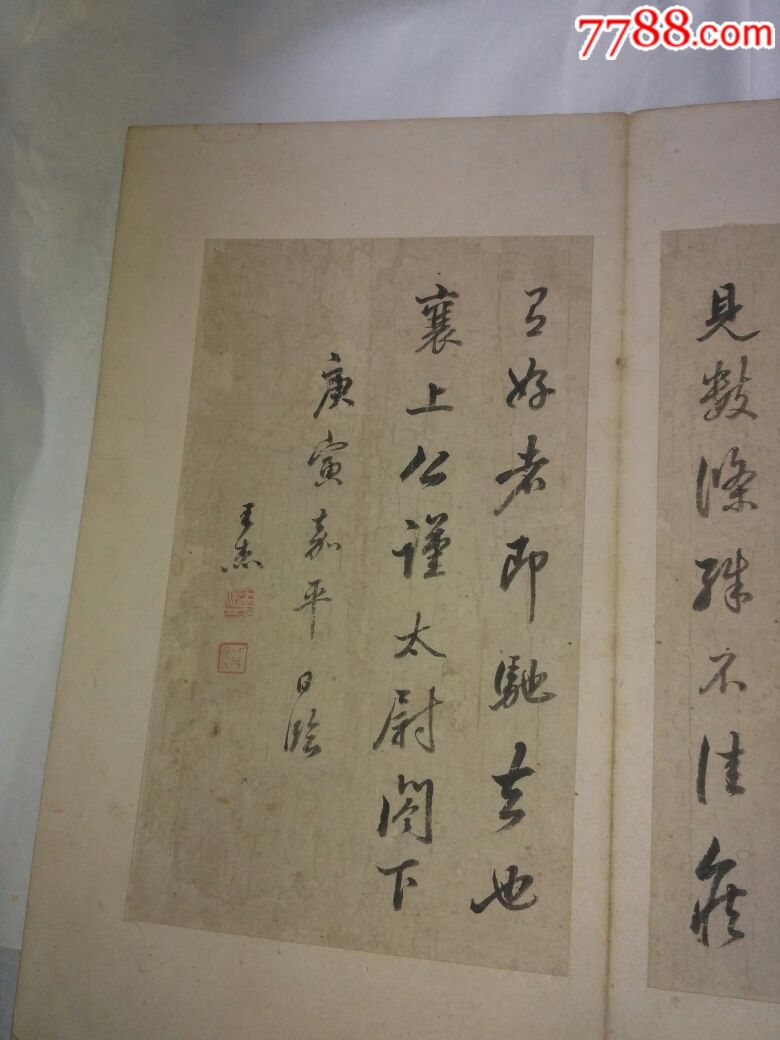 7788.com
見數條殊不佳候
有好者即馳去也
襄上公謹太尉閣下
庚寅嘉平日臨
王杰